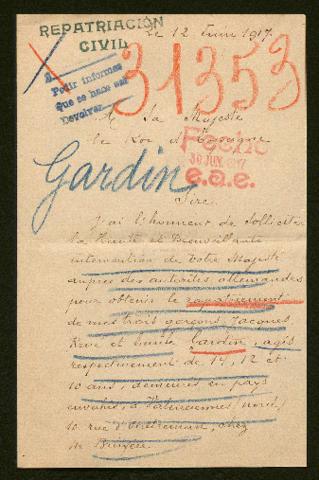 REPATRIACIÓN
CIVIL
Le 12 Juin 1917.
Pedir informes
que se hace así
Devolver
31353
A Sa Majesté
le Roi d'Espagne
Fecho
30 JUN. 1917
e.a.e.
Gardin
Sire,
J'ai l'honneur de solliciter
la Haute et Bienveillante
intervention de Votre Majesté
auprès des autorités allemandes
pour obtenir le rapatriement
de mes trois garçons Jacques
René et Gardin, agés
respectivement de 14, 12 et
10 ans, demeurés en pays
envahi, à Valenciennes (Nord)
10 rue chez